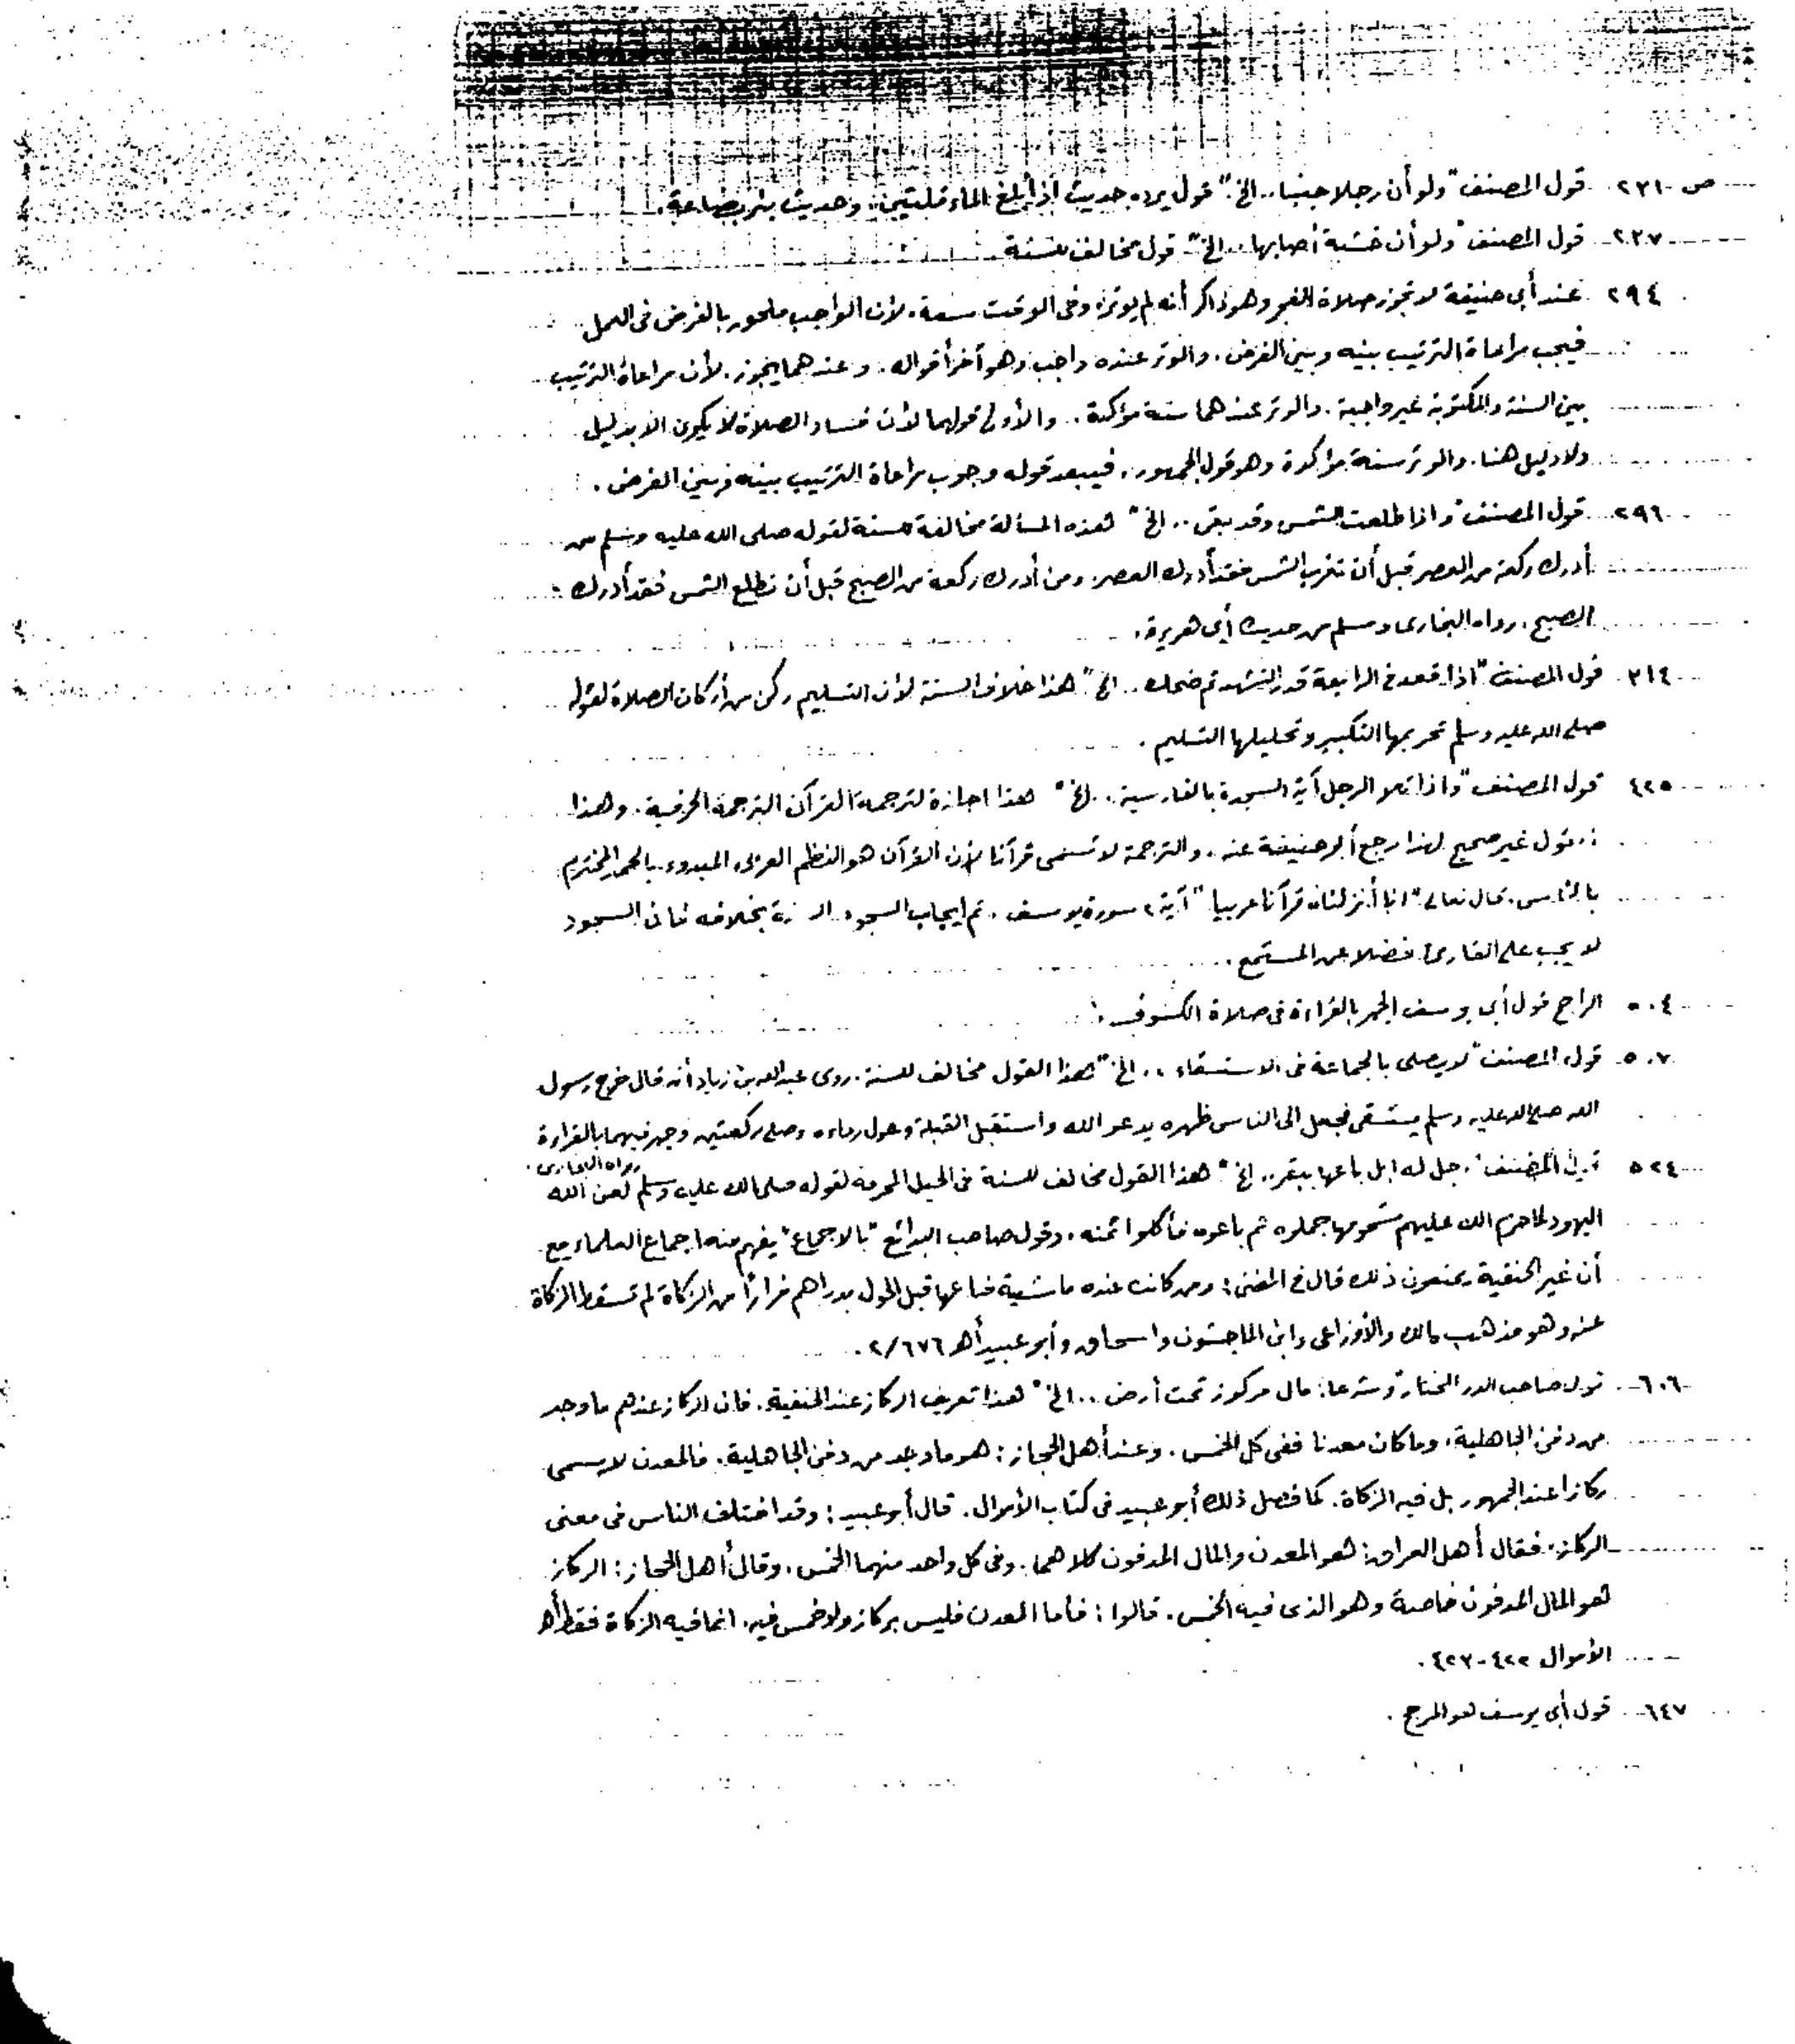 ص ٢٣١ قول المصنف "ولو أن رجلا جنبا.. الخ" قول يرده حديث اذا بلغ الماء قلتين. وحديث بئر بضاعة.
٢٣٧ قول المصنف "ولو أن خشبة أصابها.. الخ" قول مخالف للسنة
٢٩٤ عند أبي حنيفة لا تجوز صلاة الفجر وهو ذاكر أنه لم يوتر وفى الوقت سعة. لأن الواجب ملحق بالفرض فى العمل
فيجب مراعاة الترتيب بينه وبين الفرض. والوتر عنده واجب وهو آخر أقواله. وعندهما يجوز. لأن مراعاة الترتيب
بين السنة والمكتوبة غير واجبة. والوتر عندهما سنة مؤكدة. والأولى قولهما لأن فساد الصلاة لا يكون الا بدليل
ولا دليل هنا. والوتر سنة مؤكدة وهو قول الجمهور. فيبعد قوله وجوب مراعاة الترتيب بينه وبين الفرض.
٢٩٦ قول المصنف "واذا طلعت الشمس وقد بقى.. الخ" هذه المسألة مخالفة للسنة لقوله صلى الله عليه وسلم من
أدرك ركعة من العصر قبل أن تغرب الشمس فقد أدرك العصر. ومن أدرك ركعة من الصبح قبل أن تطلع الشمس فقد أدرك
الصبح. رواه البخارى ومسلم من حديث أبى هريرة.
٣١٤ قول المصنف "اذا قعد فى الرابعة قدر التشهد ثم ضحك.. الخ" هذا خلاف السنة لأن التسليم ركن من أركان الصلاة لقوله
صلى الله عليه وسلم تحريمها التكبير وتحليلها التسليم.
٤٢٥ قول المصنف "واذا تلا الرجل آية السجدة بالفارسية.. الخ" هذا اجازة لترجمة القرآن الترجمة الحرفية. وهذا
قول غير صحيح لهذا رجع أبو حنيفة عنه. والترجمة لا تسمى قرآنا لأن القرآن هو النظم العربى المبدوء بالحمد المختتم
بالناس. قال تعالى "انا أنزلناه قرآنا عربيا" آية ٢ سورة يوسف. ثم ايجاب السجود السنة بخلافه فان السجود
لا يجب على القارئ فضلا عن المستمع.
٥٠٤ الراجح قول أبى يوسف الجهر بالقراءة فى صلاة الكسوف.
٥٠٧ قول المصنف "لا يصلى بالجماعة فى الاستسقاء.. الخ" هذا القول مخالف للسنة. روى عبد الله بن زيد أنه قال خرج رسول
الله صلى الله عليه وسلم يستسقى فجعل الى الناس ظهره يدعو الله واستقبل القبلة وحول رداءه وصلى ركعتين وجهر فيهما بالقراءة
رواه البخارى.
٥٢٤ قول المصنف "رجل له ابل باعها ببقر.. الخ" هذا القول مخالف للسنة فى الحيل المحرمة لقوله صلى الله عليه وسلم لعن الله
اليهود لما حرم الله عليهم شحومها جملوه ثم باعوه فأكلوا ثمنه. وقول صاحب البدائع "بالاجماع" يفهم منه اجماع العلماء مع
أن غير الحنفية يمنعون ذلك قال فى المغنى: ومن كانت عنده ماشية فباعها قبل الحول بدراهم فرارا من الزكاة لم تسقط الزكاة
عنه وهو مذهب مالك والأوزاعى وابن الماجشون واسحاق وأبو عبيد أهـ ٢/٦٧٦.
٦٠٦ قول صاحب الدر المختار "وشرعا: مال مركوز تحت أرض.. الخ" هذا تعريف الركاز عند الحنفية. فان الركاز عندهم ما وجد
من دفن الجاهلية، وما كان معدنا ففى كل الخمس. وعند أهل الحجاز: هو ما وجد من دفن الجاهلية. فالمعدن لا يسمى
ركازا عند الجمهور بل فيه الزكاة. كما فصل ذلك أبو عبيد فى كتاب الأموال. قال أبو عبيد: وقد اختلف الناس فى معنى
الركاز. فقال أهل العراق: هو المعدن والمال المدفون كلاهما. وفى كل واحد منهما الخمس. وقال أهل الحجاز: الركاز
هو المال المدفون خاصة وهو الذى فيه الخمس. قالوا: فأما المعدن فليس بركاز ولا خمس فيه. انما فيه الزكاة فقط أهـ
الأموال ٤٢٢-٤٢٣.
٦٤٧ قول أبى يوسف هو المرجح.